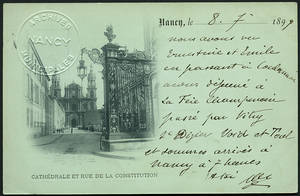 ARCHIVES
NANCY
MUNICIPALES
Nancy, le 8. 7
nous avons vu
Ernestine et Emile
en passant à
avons déjeuné à
La Fère Champenoise
passé par Vitry
St Dizier Void et Toul
et sommes arrivés à
Nancy à 7 heures
CATHÉDRALE ET RUE DE LA CONSTITUTION